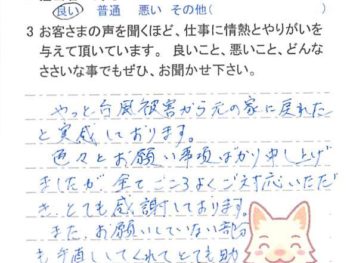 良い 普通 悪い その他( )
3 お客さまの声を聞くほど、仕事に情熱とやりがいを
与えて頂いています。 良いこと、悪いこと、どんな
ささいな事でもぜひ、お聞かせ下さい。
やっと台風被害から元の家に戻れた
と実感しております。
色々とお願い事項ばかり申し上げ
ましたが、全てこころよくご対応いただ
き、とても感謝しております。
また、お願いしていない部分
も手直ししてくれてとても助